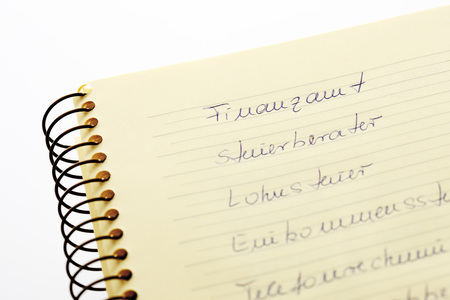 Finanzamt
Steuerberater
Lohnsteuer
Einkommensste
Telefonrechnu